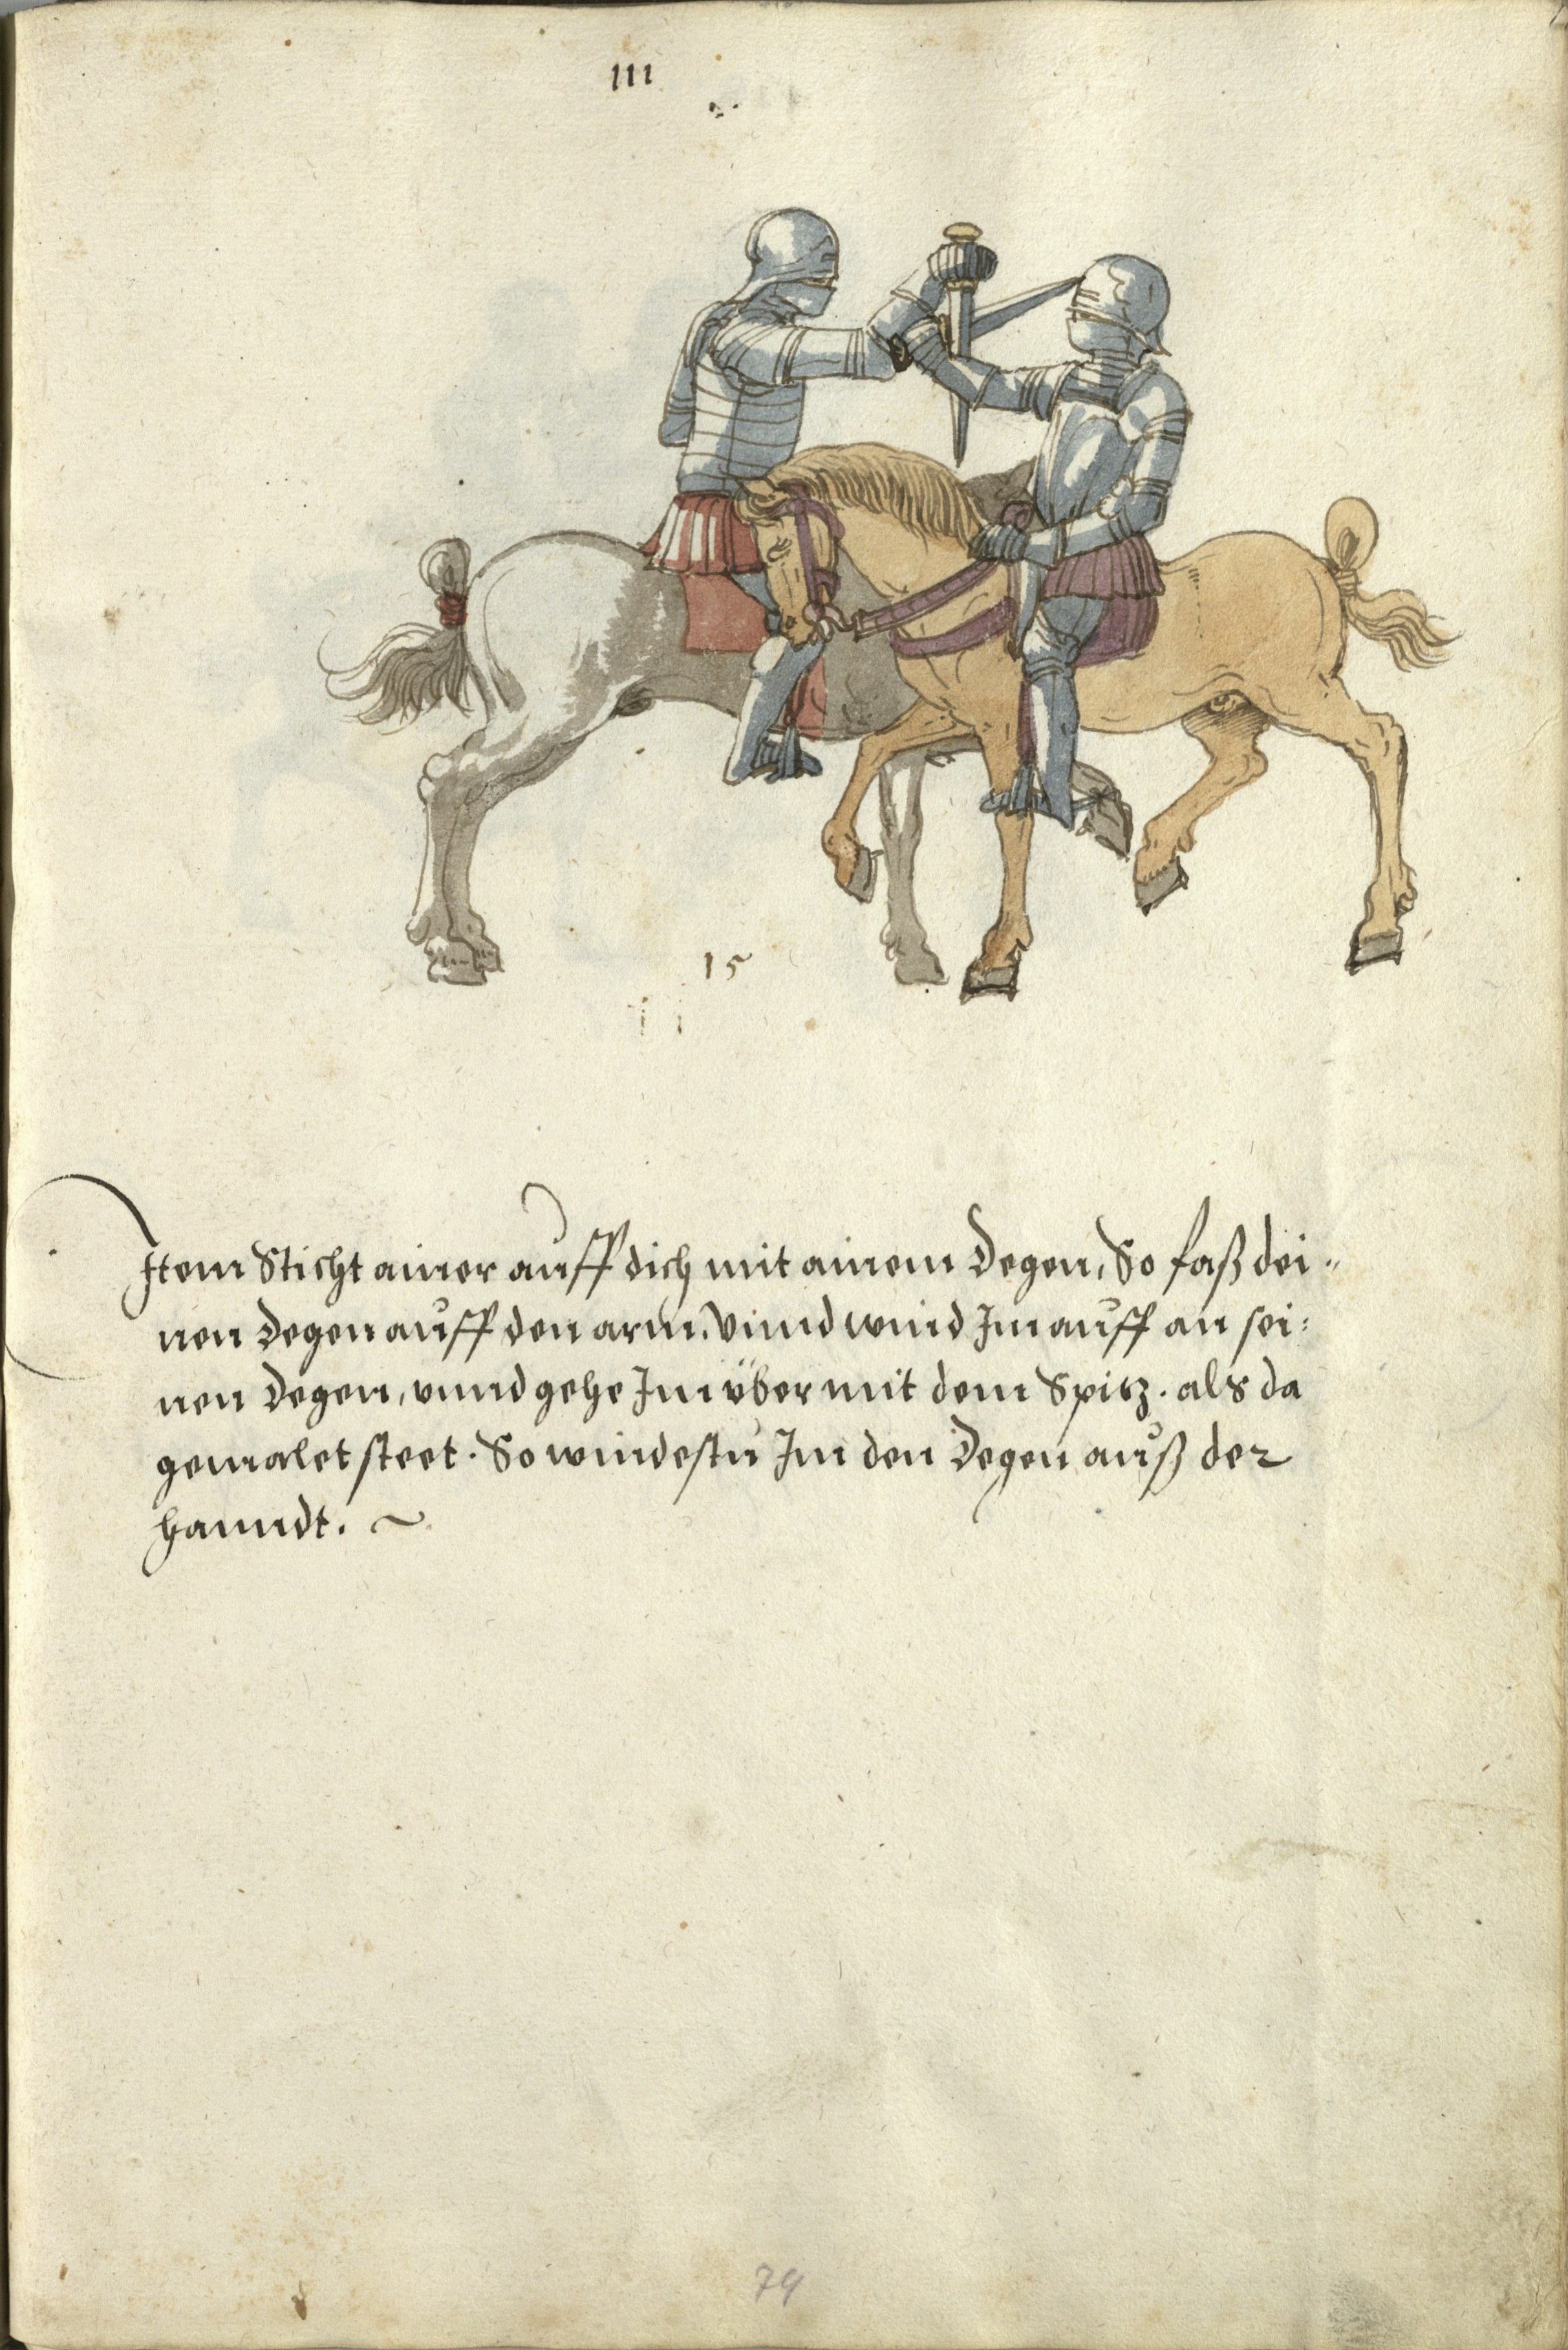 III
15
Item Sticht ainer auff dich mit ainem Degen, So faß dei„
nen Degen auff den arm. Vnnd wind Im auff an sei:
nen Degen, vnnd gehe Im v̈ber mit dem Spitz. als da
gemalet steet. So windestu Im den Degen auß der
hanndt. ~
79